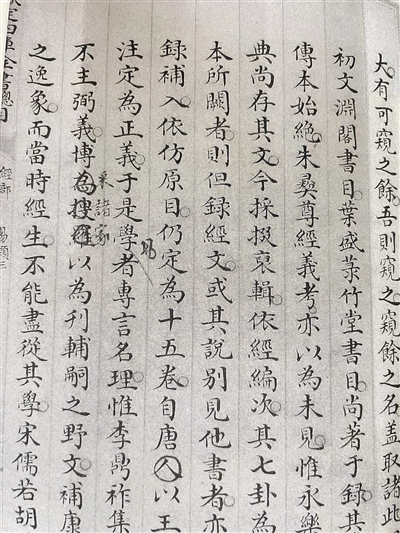 大有可窺之餘吾則窺之窺餘之名盖取諸此
初文淵閣書目葉盛菉竹堂書目尚著于録其
傳本始絶朱彝尊經義考亦以為未見惟永樂
典尚存其文今採掇裒輯依經編次其七卦為
本所闕者則但録經文或其說别見他書者亦
録補入依仿原目仍定為十五卷自唐人以王
易
注定為正義于是學者專言名理惟李鼎祚集
采諸家
不主弼義博為搜羅以為刋輔嗣之野文補康
之逸象而當時經生不能盡從其學宋儒若胡
定四庫全書總目
經部
易類三